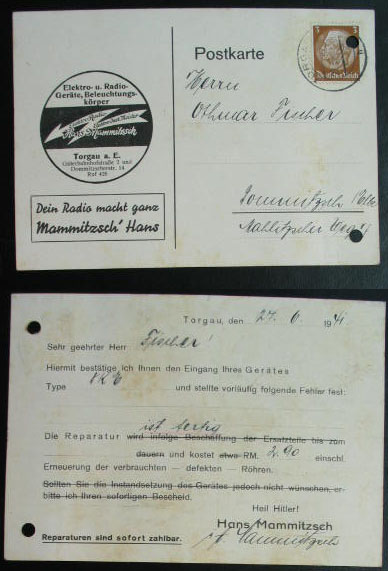 Postkarte
3 3
Deutsches Reich
TORGAU
Elektro- u. Radio-
Geräte, Beleuchtungs-
körper
Hans Mammitzsch
Torgau a. E.
Ruf 425
Dein Radio macht ganz
Mammitzsch' Hans
Herrn
Othmar Fischer
Dommitzsch
Torgau, den 27. 6. 1941
Sehr geehrter Herr Fischer!
Hiermit bestätige ich Ihnen den Eingang Ihres Gerätes
Type VKE und stellte vorläufig folgende Fehler fest:
ist fertig
Die Reparatur wird infolge Beschaffung der Ersatzteile bis zum
dauern und kostet etwa RM. 2.90 einschl.
Erneuerung der verbrauchten — defekten — Röhren.
Sollten Sie die Instandsetzung des Gerätes jedoch nicht wünschen, er-
bitte ich Ihren sofortigen Bescheid.
Heil Hitler!
Hans Mammitzsch
Reparaturen sind sofort zahlbar.
Mammitzsch